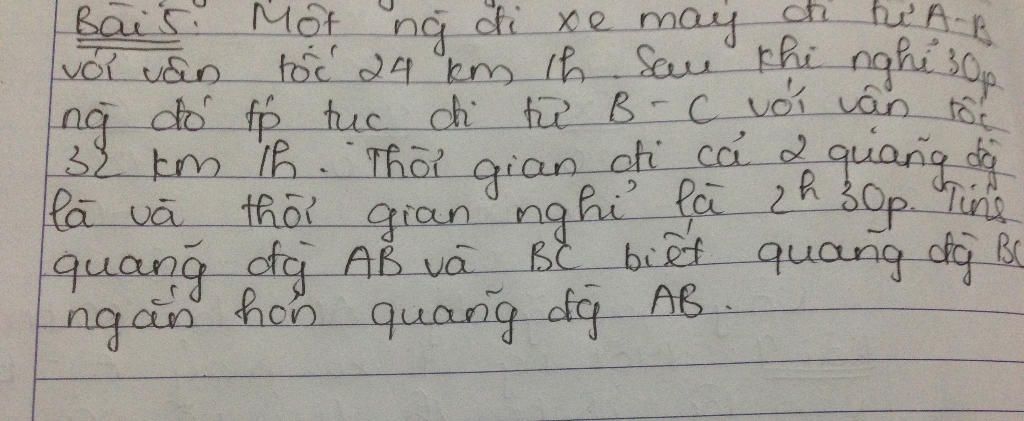 Bài 5: Một ng đi xe máy đi từ A-B
với vận tốc 24 km/h. Sau khi nghỉ 30p
ng đó tp tục đi từ B-C với vận tốc
32 km/h. Thời gian đi cả 2 quãng đg
là và thời gian nghỉ là 2h30p. Tính
quãng đg AB và BC biết quãng đg BC
ngắn hơn quãng đg AB.